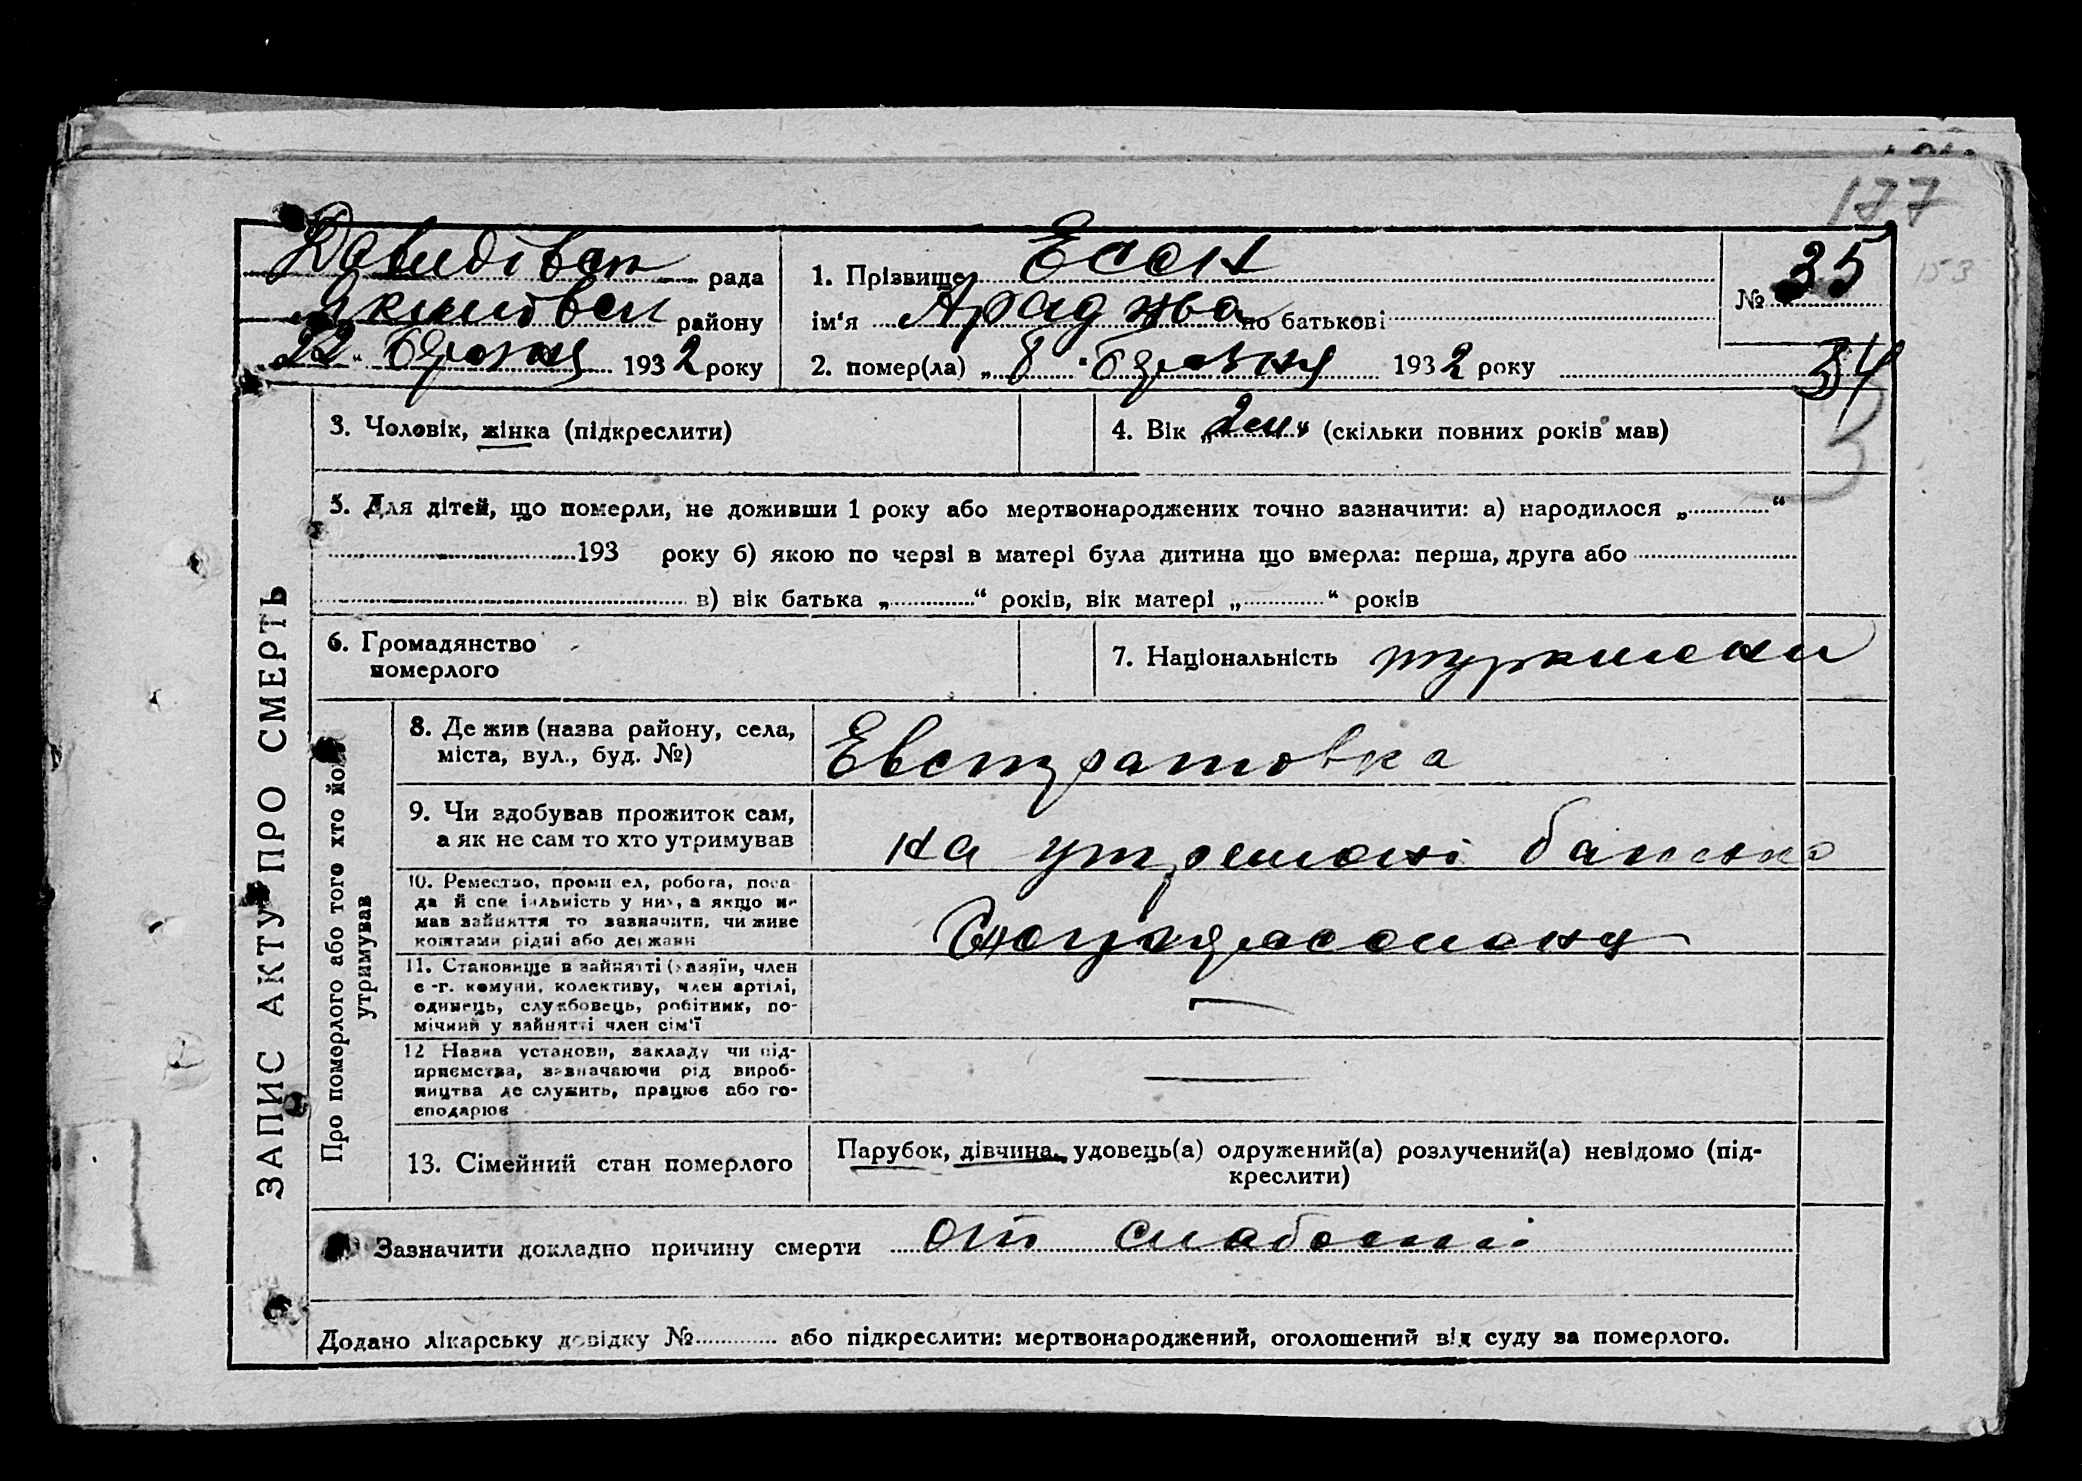 177
Давидівськ рада
Якимівськ району
22 " березня 1932 року
1. Прізвище Есен
ім'я по батькові
2. помер(ла) „ 8 " березня 1932 року
№ 35
34
153
ЗАПИС АКТУ ПРО СМЕРТЬ
3. Чоловік, жінка (підкреслити)
4. Вік „ (скільки повних років мав)
3
5. Для дітей, що померли, не доживши 1 року або мертвонароджених точно зазначити: а) народилося „ “
193 року б) якою по черзі в матері була дитина що вмерла: перша, друга або
в) вік батька „ “ років, вік матері „ “ років
6. Громадянство
померлого
7. Національність туркмени
Про померлого або того хто його
утримував
8. Де жив (назва району, села,
міста, вул., буд. №)
Евстратовка
9. Чи здобував прожиток сам,
а як не сам то хто утримував
на утремані батька
10. Ремество, промисел, робота, поса-
да й спеціяльність у них, а якщо не
мав зайняття то зазначити, чи живе
коштами рідні або держави
11. Становище в зайнятті (хазяїн, член
с.-г. комуни, колективу, член артілі,
одинець, службовець, робітник, по-
мічний у зайнятті член сім'ї
12 Назва установи, закладу чи під-
приємства, зазначаючи рід вироб-
ництва де служить, працює або го-
сподарює
13. Сімейний стан померлого
Парубок, дівчина, удовець(а) одружений(а) розлучений(а) невідомо (під-
креслити)
Зазначити докладно причину смерти от слабості
Додано лікарську довідку № або підкреслити: мертвонароджений, оголошений від суду за померлого.